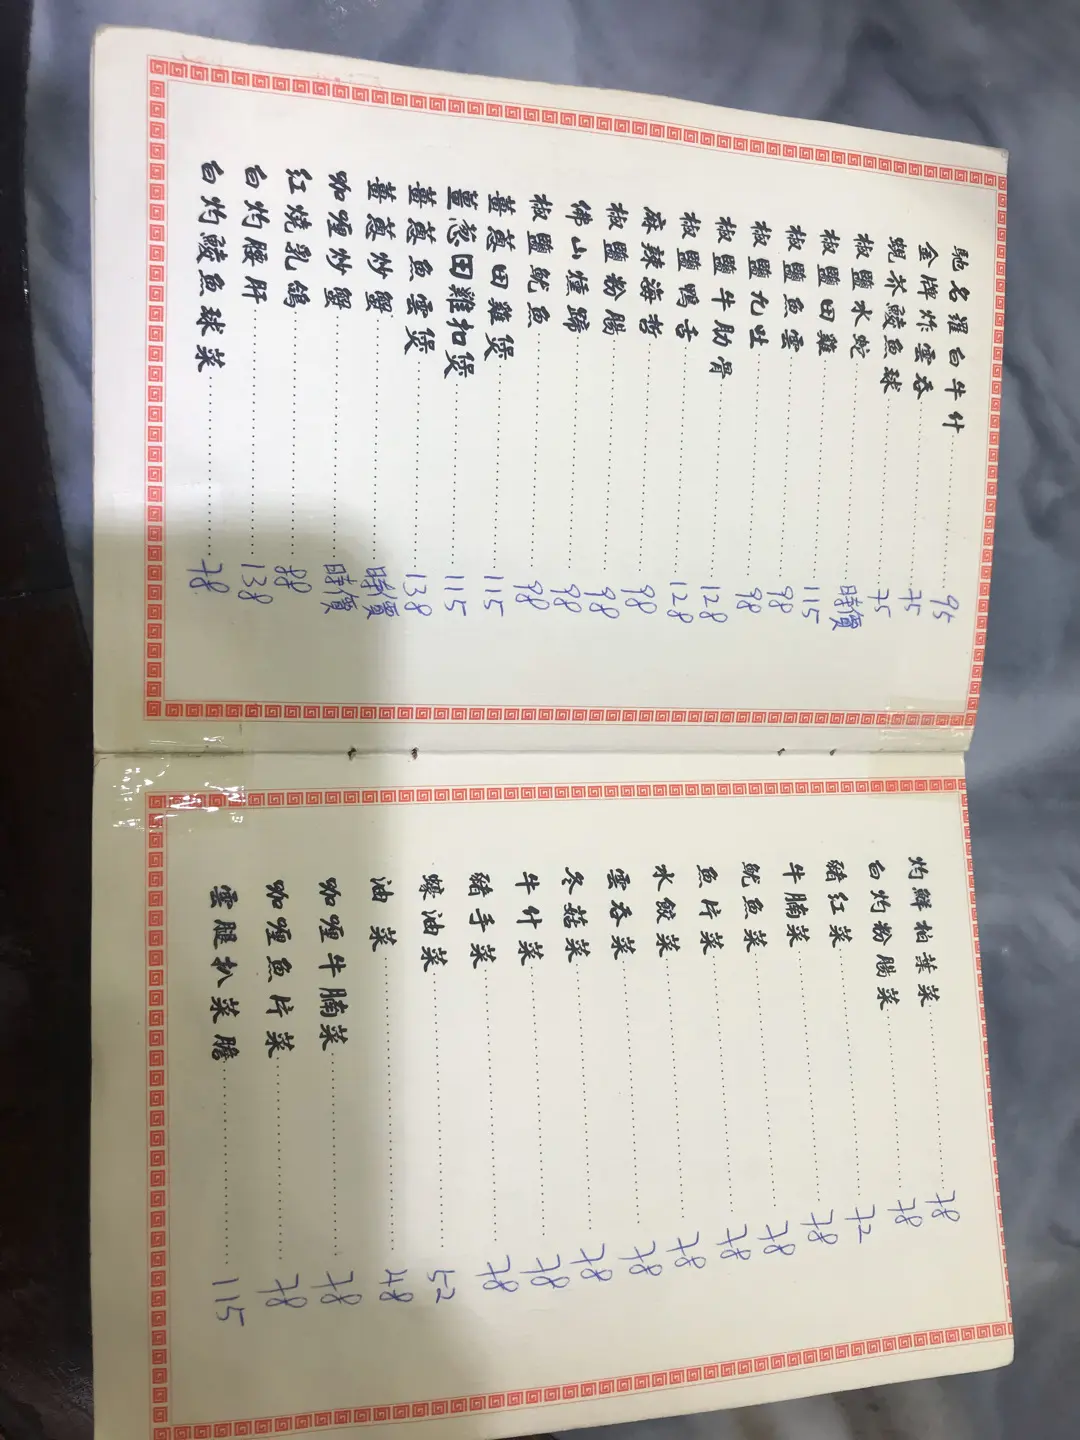 馳名蘿白牛什 95
金牌炸雲吞 75
蜆芥鯪魚球 75
椒鹽水蛇 時價
椒鹽田雞 115
椒鹽魚雲 98
椒鹽九吐 98
椒鹽牛肋骨 128
椒鹽鴨舌 128
麻辣海哲 98
椒鹽粉腸 98
佛山燻蹄 98
椒鹽魷魚 98
薑蔥田雞煲 115
薑葱田雞扣煲 115
薑蔥魚雲煲 138
薑蔥炒蟹 時價
咖喱炒蟹 時價
紅燒乳鴿 88
白灼腰肝 138
白灼鯪魚球菜 78
灼鮮柏葉菜 78
白灼粉腸菜 78
豬紅菜 72
牛腩菜 78
魷魚菜 78
魚片菜 78
水餃菜 78
雲吞菜 78
冬菇菜 78
牛什菜 78
豬手菜 78
蠔油菜 52
油菜 48
咖喱牛腩菜 78
咖喱魚片菜 78
雲腿扒菜膽 115